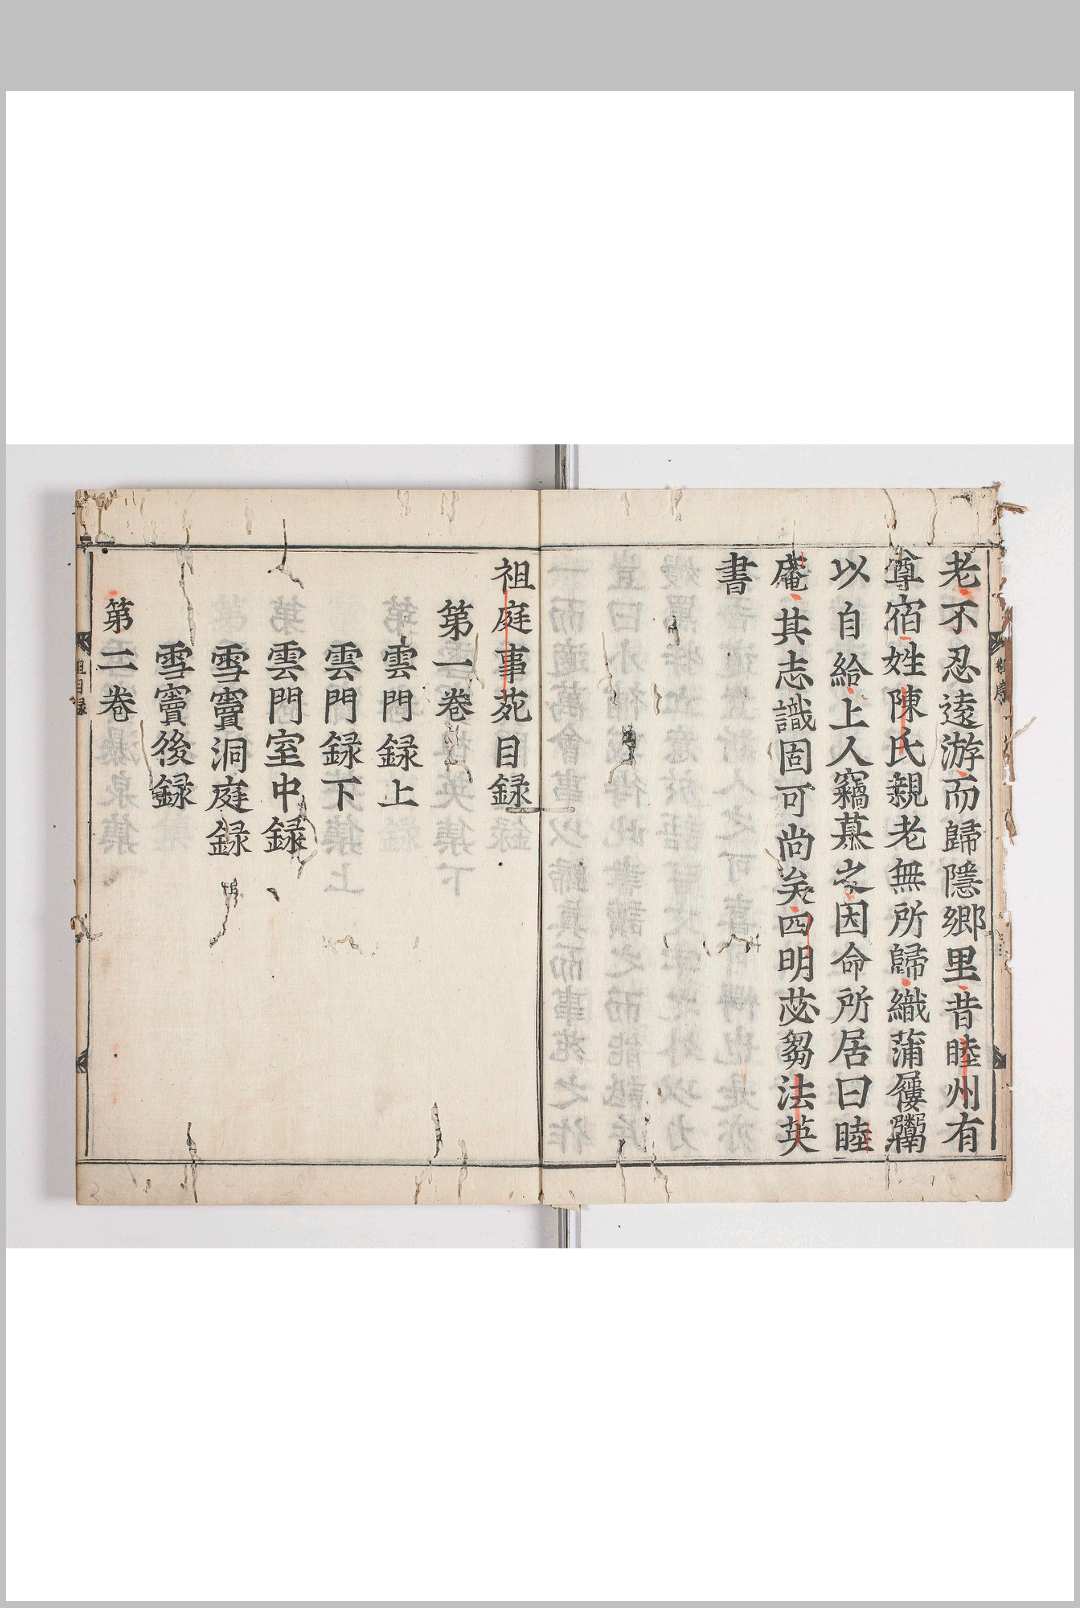 老不忍遠游而歸隱鄉里昔睦州有
尊宿姓陳氏親老無所歸織蒲屨鬻
以自給上人竊慕之因命所居曰睦
庵其志識固可尚矣四明苾芻法英
書
祖庭事苑目録
第一卷
雲門録上
雲門録下
雲門室中録
雪竇洞庭録
雪竇後録
第二卷
祖目録